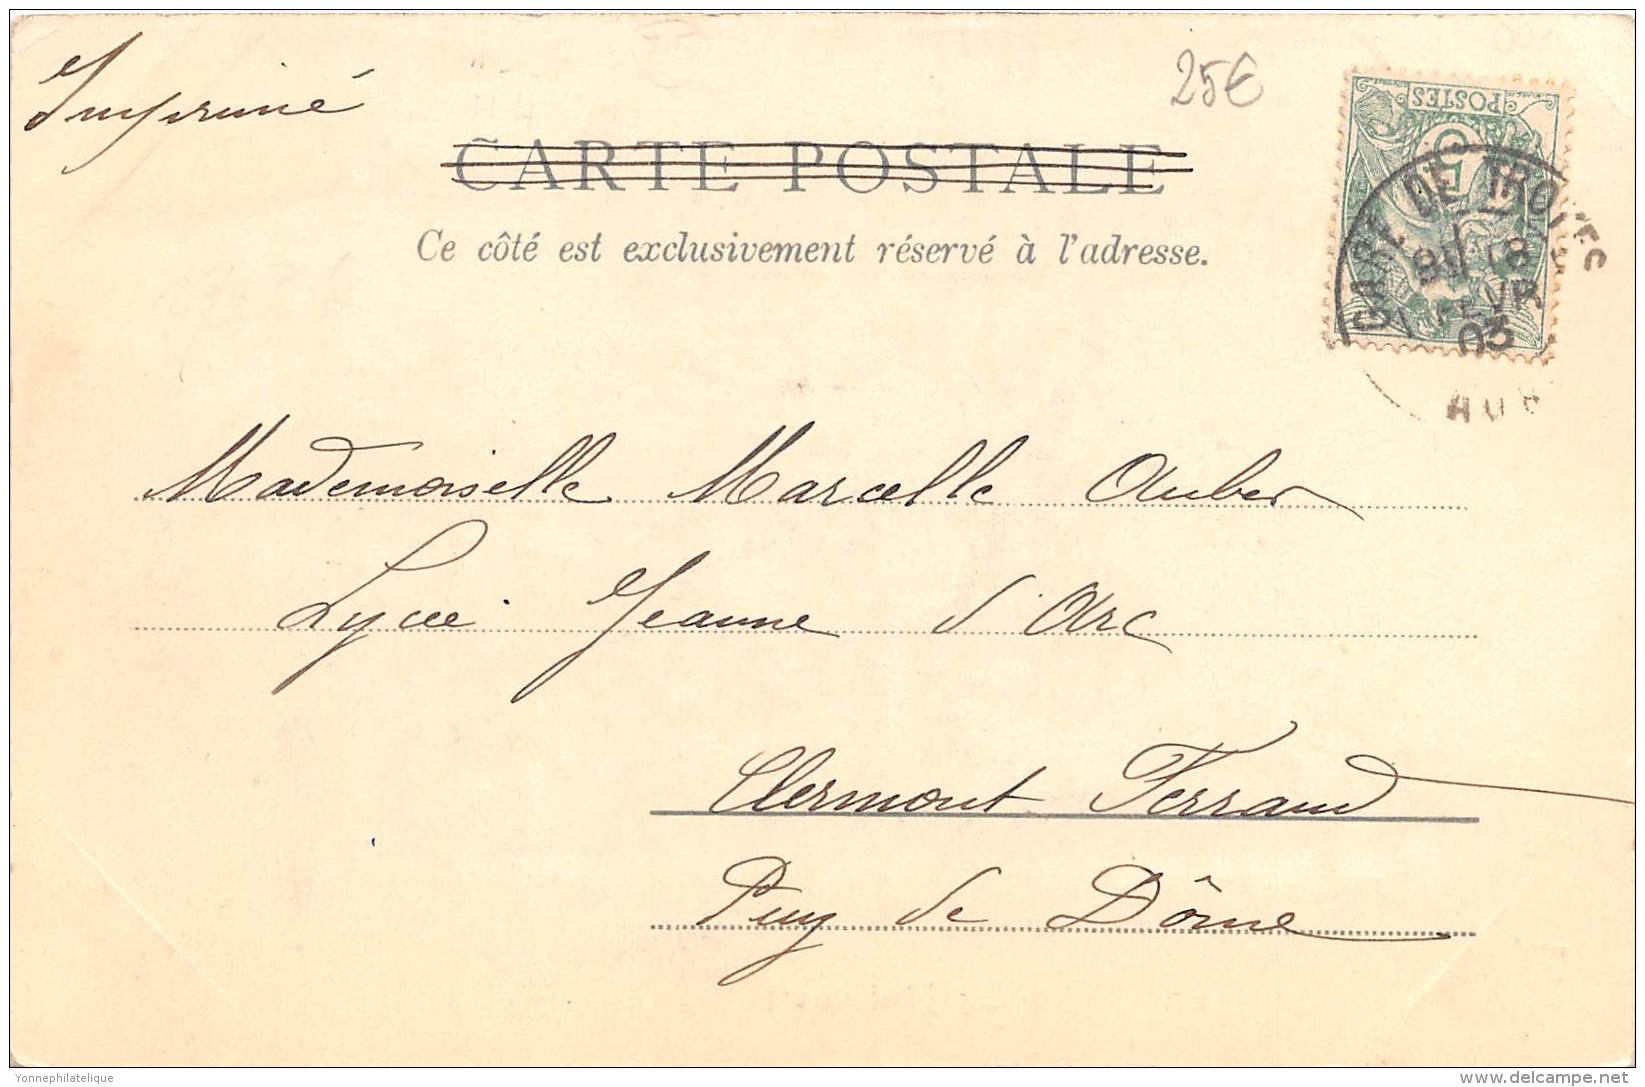 Imprimé
25€
POSTES
5
CARTE POSTALE
GARE DE TROYES
18
FEVR
03
AUB
Ce côté est exclusivement réservé à l'adresse.
Mademoiselle Marcelle Auber
Lycée Jeanne d'Arc
Clermont Ferrand
Puy de Dôme
Yonnephilatelique
delcampe.net